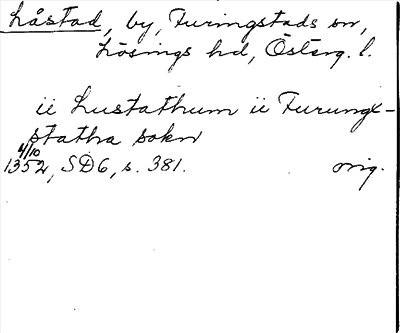 Låstad, by, Furingstads sn,
Lösings hd, Österg. l.
ii Lustathum ii Furungx-
statha sokn
4/10
1352, SD6, s. 381. orig.